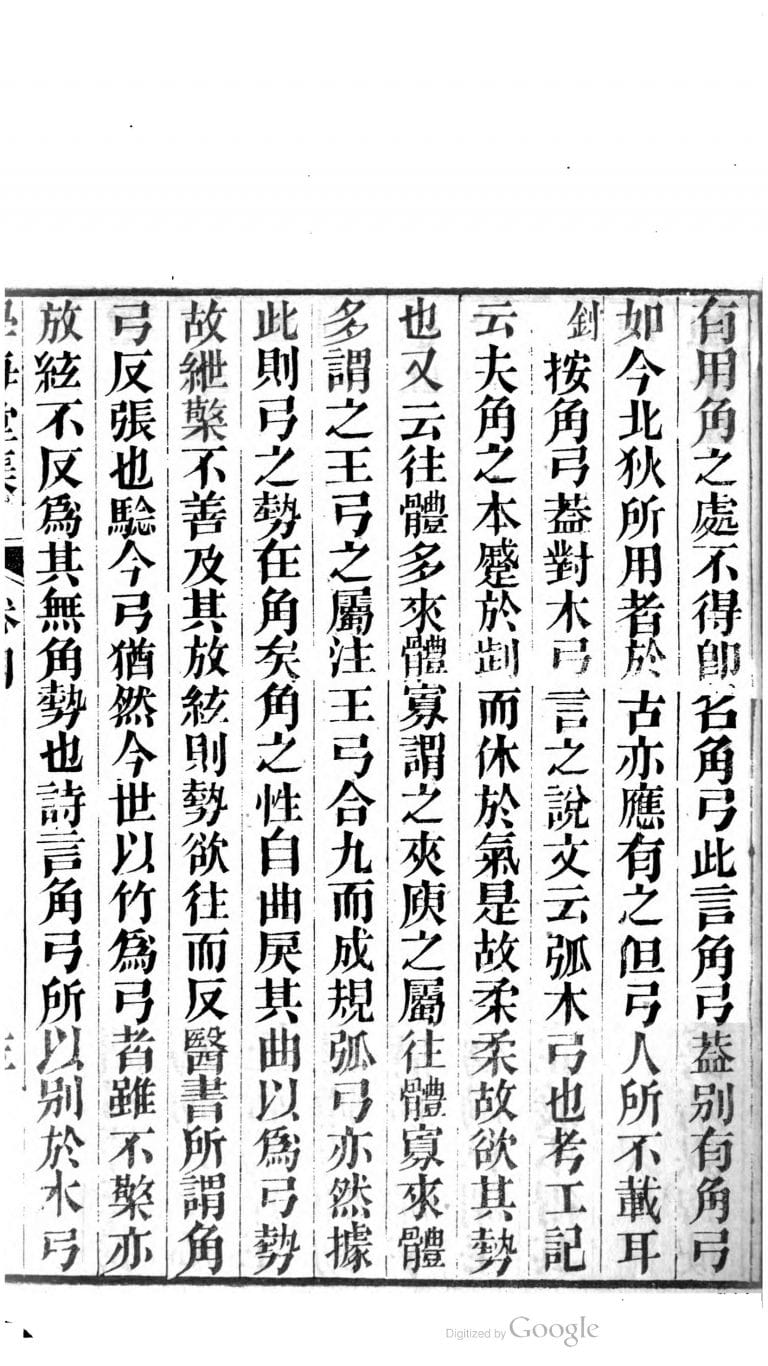 有用角之處不得卽名角弓此言角弓葢別有角弓
如今北狄所用者於古亦應有之但弓人所不載耳
釗按角弓葢對木弓言之說文云弧木弓也考工記
云夫角之本蹙於㓭而休於氣是故柔柔故欲其勢
也又云往體多來體寡謂之夾庾之屬往體寡來體
多謂之王弓之屬注王弓合九而成規弧弓亦然據
此則弓之勢在角矣角之性自曲戾其曲以爲弓勢
故紲檠不善及其放絃則勢欲往而反醫書所謂角
弓反張也驗今弓猶然今世以竹爲弓者雖不檠亦
放絃不反爲其無角勢也詩言角弓所以別於木弓
Digitized by Google